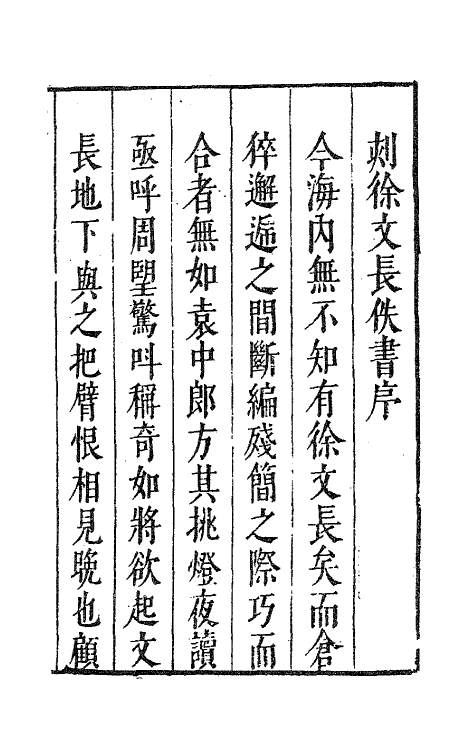 刻徐文長佚書序
今海內無不知有徐文長矣而倉
猝邂逅之間斷編殘簡之際巧而
合者無如袁中郎方其挑燈夜讀
亟呼周望驚呌稱奇如將欲起文
長地下與之把臂恨相見晚也顧